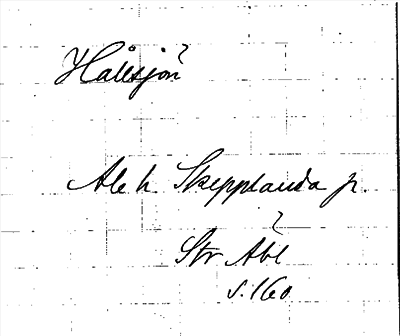 Hålsjön
Ale h. Skepplanda sn.
Str Åbl
s. 160